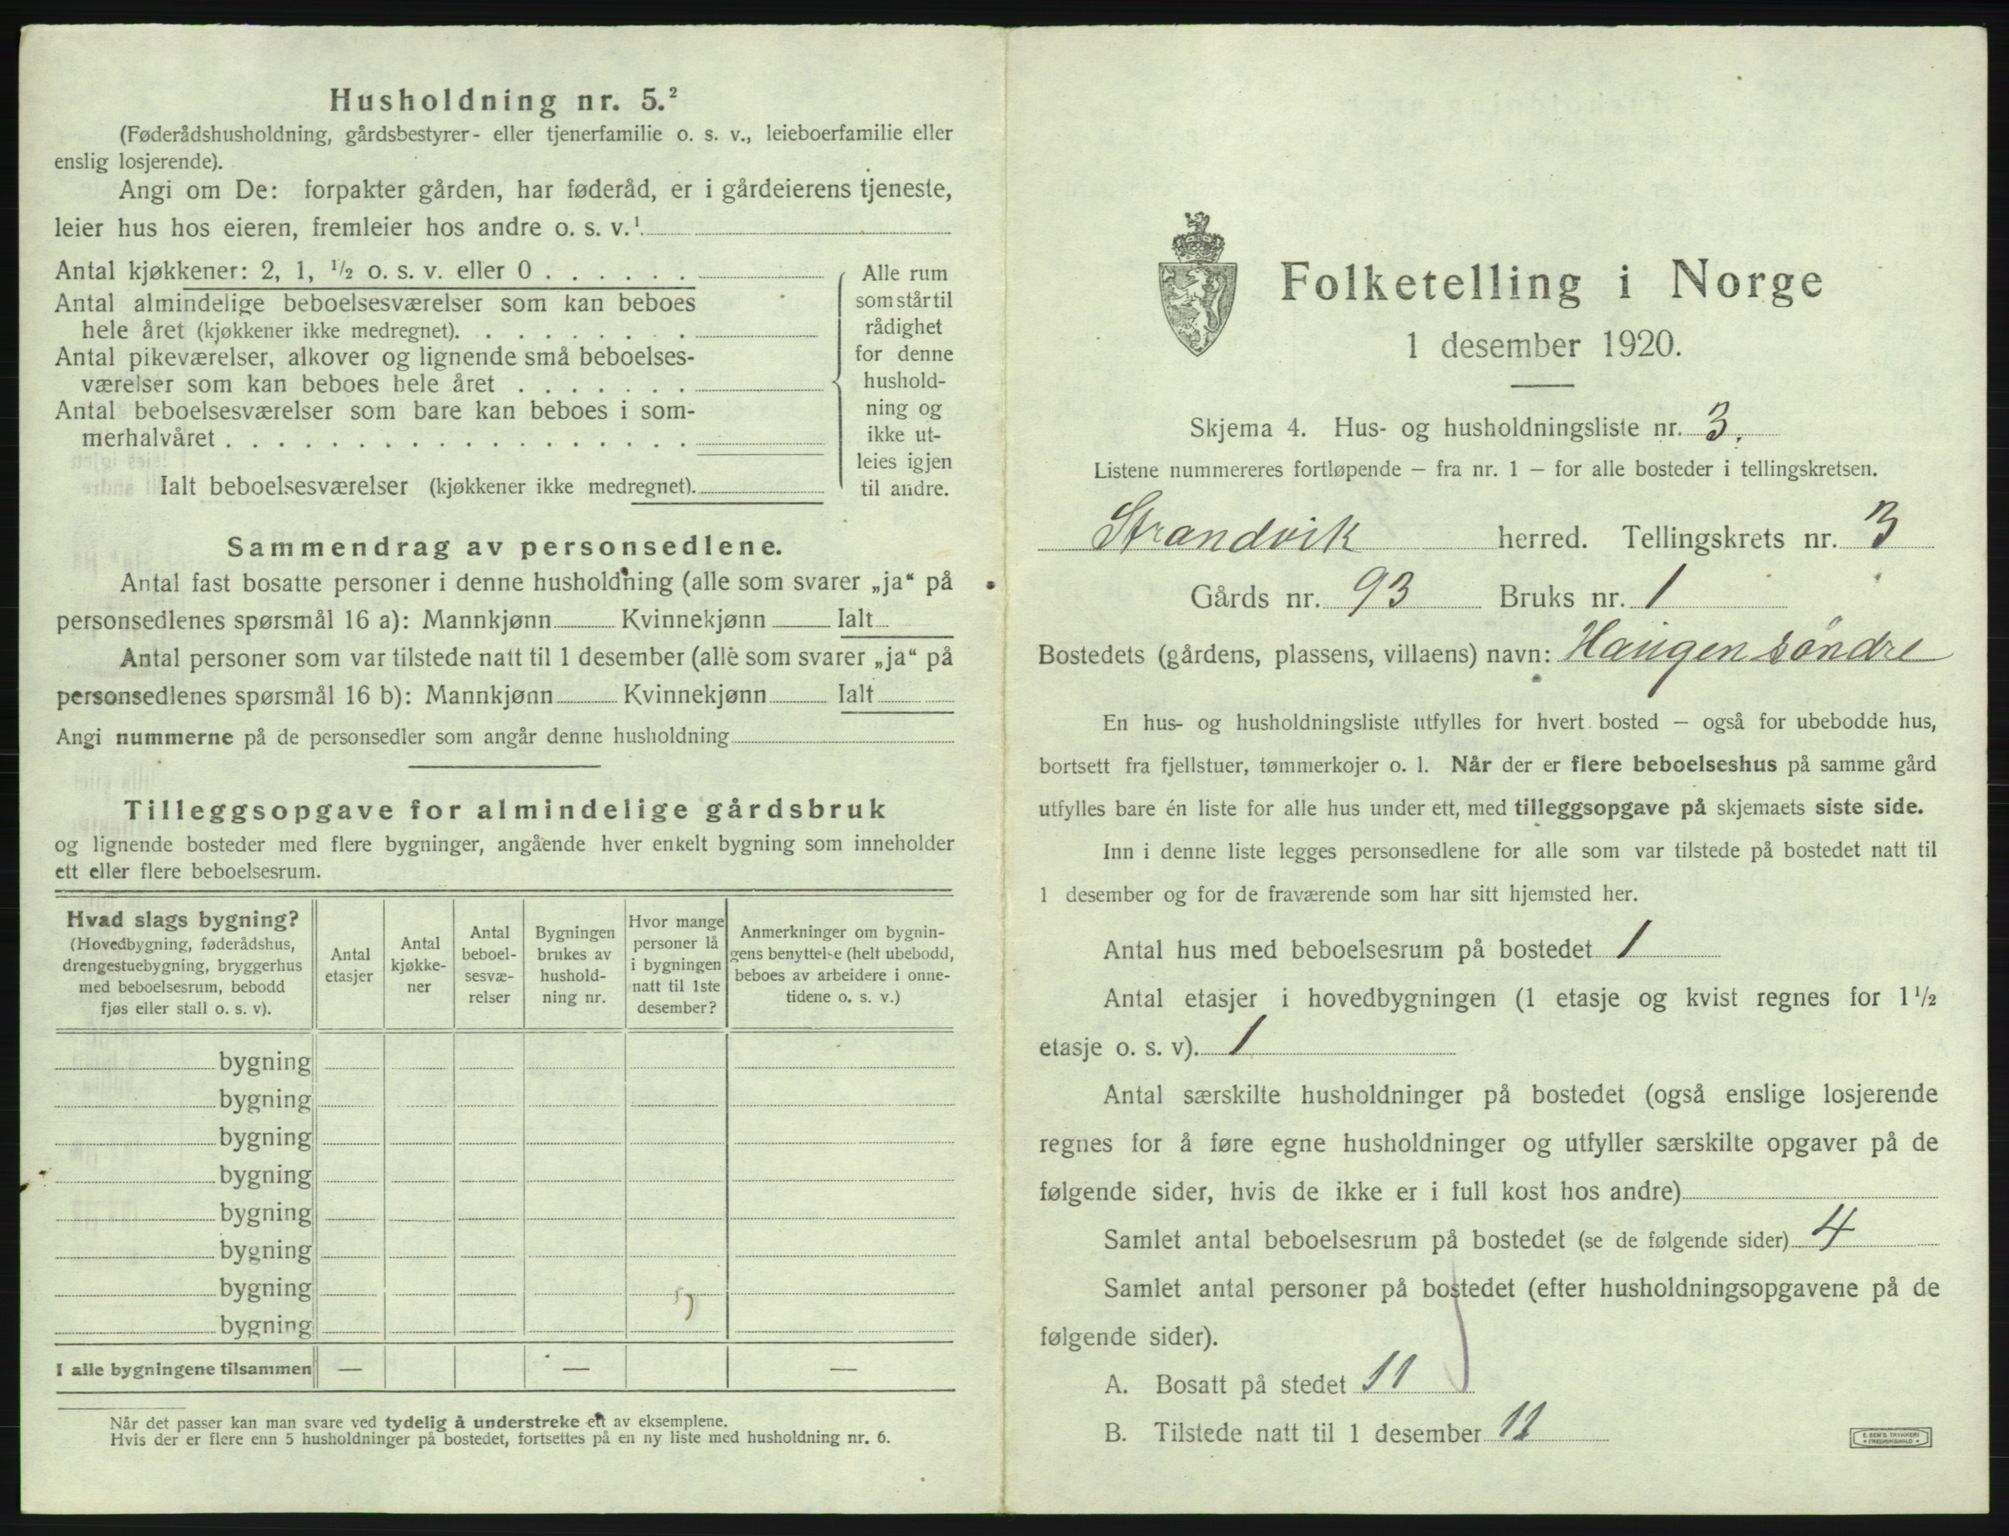 Husholdning nr. 5.²
(Føderådshusholdning, gårdsbestyrer- eller tjenerfamilie o. s. v., leieboerfamilie eller
enslig losjerende).
Angi om De: forpakter gården, har føderåd, er i gårdeierens tjeneste,
leier hus hos eieren, fremleier hos andre o. s. v.¹
Antal kjøkkener: 2, 1, ½ o. s. v. eller 0 . . . . . .
Antal almindelige beboelsesværelser som kan beboes
hele året (kjøkkener ikke medregnet). . . . . . . . .
Antal pikeværelser, alkover og lignende små beboelses-
værelser som kan beboes hele året . . . . . . .
Antal beboelsesværelser som bare kan beboes i som-
merhalvåret . . . . . . . . . . . . . . . . . .
Ialt beboelsesværelser (kjøkkener ikke medregnet).
Alle rum
som står til
rådighet
for denne
hushold-
ning og
ikke ut-
leies igjen
til andre.
Sammendrag av personsedlene.
Antal fast bosatte personer i denne husholdning (alle som svarer „ja“ på
personsedlenes spørsmål 16 a): Mannkjønn Kvinnekjønn Ialt
Antal personer som var tilstede natt til 1 desember (alle som svarer „ja“ på
personsedlenes spørsmål 16 b): Mannkjønn Kvinnekjønn Ialt
Angi nummerne på de personsedler som angår denne husholdning
Tilleggsopgave for almindelige gårdsbruk
og lignende bosteder med flere bygninger, angående hver enkelt bygning som inneholder
ett eller flere beboelsesrum.
Hvad slags bygning?
(Hovedbygning, føderådshus,
drengestuebygning, bryggerhus
med beboelsesrum, bebodd
fjøs eller stall o. s. v).
Antal
etasjer
Antal
kjøkke-
ner
Antal
beboel-
sesvæ-
relser
Bygningen
brukes av
hushold-
ning nr.
Hvor mange
personer lå
i bygningen
natt til 1ste
desember?
Anmerkninger om bygnin-
gens benyttelse (helt ubebodd,
beboes av arbeidere i onne-
tidene o. s. v.)
bygning
bygning
bygning
bygning
bygning
bygning
bygning
bygning
I alle bygningene tilsammen — — —
Når det passer kan man svare ved tydelig å understreke ett av eksemplene.
Hvis der er flere enn 5 husholdninger på bostedet, fortsettes på en ny liste med husholdning nr. 6.
Folketelling i Norge
1 desember 1920.
Skjema 4. Hus- og husholdningsliste nr. 3.
Listene nummereres fortløpende – fra nr. 1 – for alle bosteder i tellingskretsen.
Strandvik herred. Tellingskrets nr. 3
Gårds nr. 93 Bruks nr. 1
Bostedets (gårdens, plassens, villaens) navn: Haugen söndre
En hus- og husholdningsliste utfylles for hvert bosted – også for ubebodde hus,
bortsett fra fjellstuer, tømmerkojer o. l. Når der er flere beboelseshus på samme gård
utfylles bare én liste for alle hus under ett, med tilleggsopgave på skjemaets siste side.
Inn i denne liste legges personsedlene for alle som var tilstede på bostedet natt til
1 desember og for de fraværende som har sitt hjemsted her.
Antal hus med beboelsesrum på bostedet 1
Antal etasjer i hovedbygningen (1 etasje og kvist regnes for 1½
etasje o. s. v). 1
Antal særskilte husholdninger på bostedet (også enslige losjerende
regnes for å føre egne husholdninger og utfyller særskilte opgaver på de
følgende sider, hvis de ikke er i full kost hos andre)
Samlet antal beboelsesrum på bostedet (se de følgende sider) 4
Samlet antal personer på bostedet (efter husholdningsopgavene på de
følgende sider).
A. Bosatt på stedet 11
B. Tilstede natt til 1 desember 11